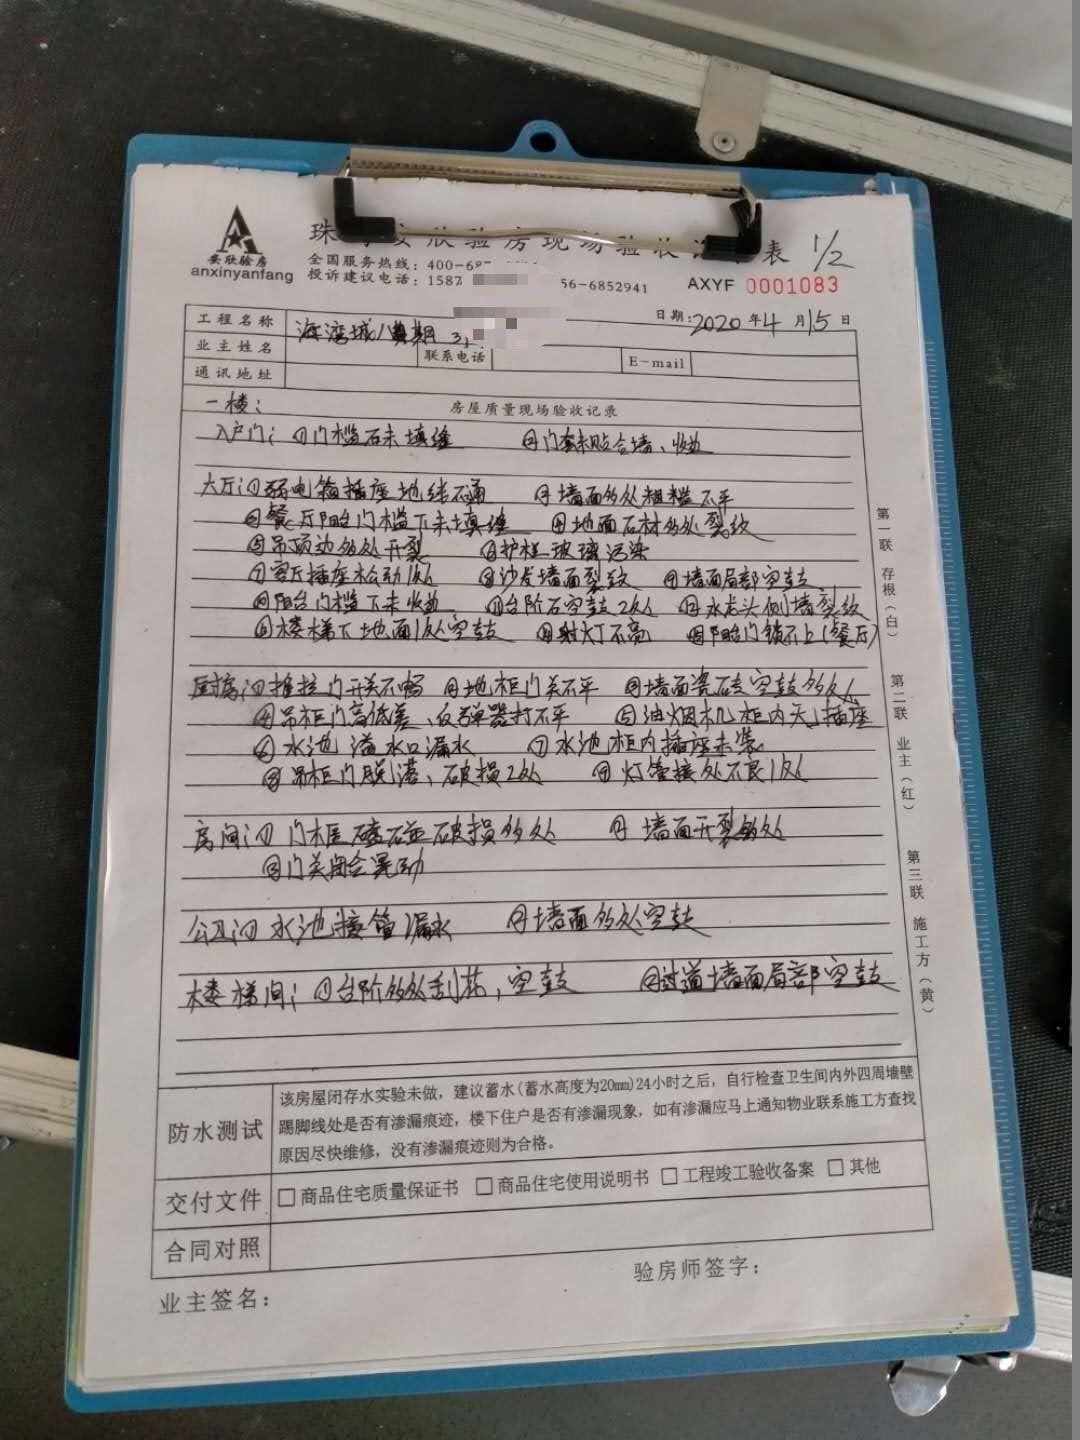 安欣验房
anxinyanfang
珠 安欣验房现场验收 表 1/2
全国服务热线：400-687
投诉建议电话：1587 56-6852941
AXYF 0001083
日期：2020年4月15日
工程名称 海湾城 期 3
业主姓名 联系电话 E-mail
通讯地址
一楼：
房屋质量现场验收记录
入户门：①门槛石未填缝 ②门套未贴合墙、收边
大厅：①弱电箱插座地线不通 ②墙面多处粗糙不平
③餐厅阳台门槛下未填缝 ④地面石材多处裂纹
⑤吊顶边多处开裂 ⑥护栏玻璃污染
⑦客厅插座松动1处 ⑧沙发墙面裂纹 ⑨墙面局部空鼓
⑩阳台门槛下未收边 ⑪台阶石空鼓2处 ⑫水龙头侧墙裂纹
⑬楼梯下地面1处空鼓 ⑭射灯不亮 ⑮阳台门锁不上(餐厅)
厨房：①推拉门开关不畅 ②地柜门关不平 ③墙面瓷砖空鼓多处
④吊柜门高低差、反弹器打不平 ⑤油烟机柜内无插座
⑥水池溢水口漏水 ⑦水池柜内插座未装
⑧吊柜门脱漆、破损2处 ⑨灯管接处不良1处
房间：①门框磕碰破损多处 ②墙面开裂多处
③门关闭会晃动
公卫：①水池接管漏水 ②墙面多处空鼓
楼梯间：①台阶多处刮花，空鼓 ②过道墙面局部空鼓
第一联 存根（白）
第二联 业主（红）
第三联 施工方（黄）
防水测试
该房屋闭存水实验未做，建议蓄水(蓄水高度为20mm)24小时之后，自行检查卫生间内外四周墙壁
踢脚线处是否有渗漏痕迹，楼下住户是否有渗漏现象，如有渗漏应马上通知物业联系施工方查找
原因尽快维修，没有渗漏痕迹则为合格。
交付文件 □商品住宅质量保证书 □商品住宅使用说明书 □工程竣工验收备案 □其他
合同对照
业主签名：
验房师签字：